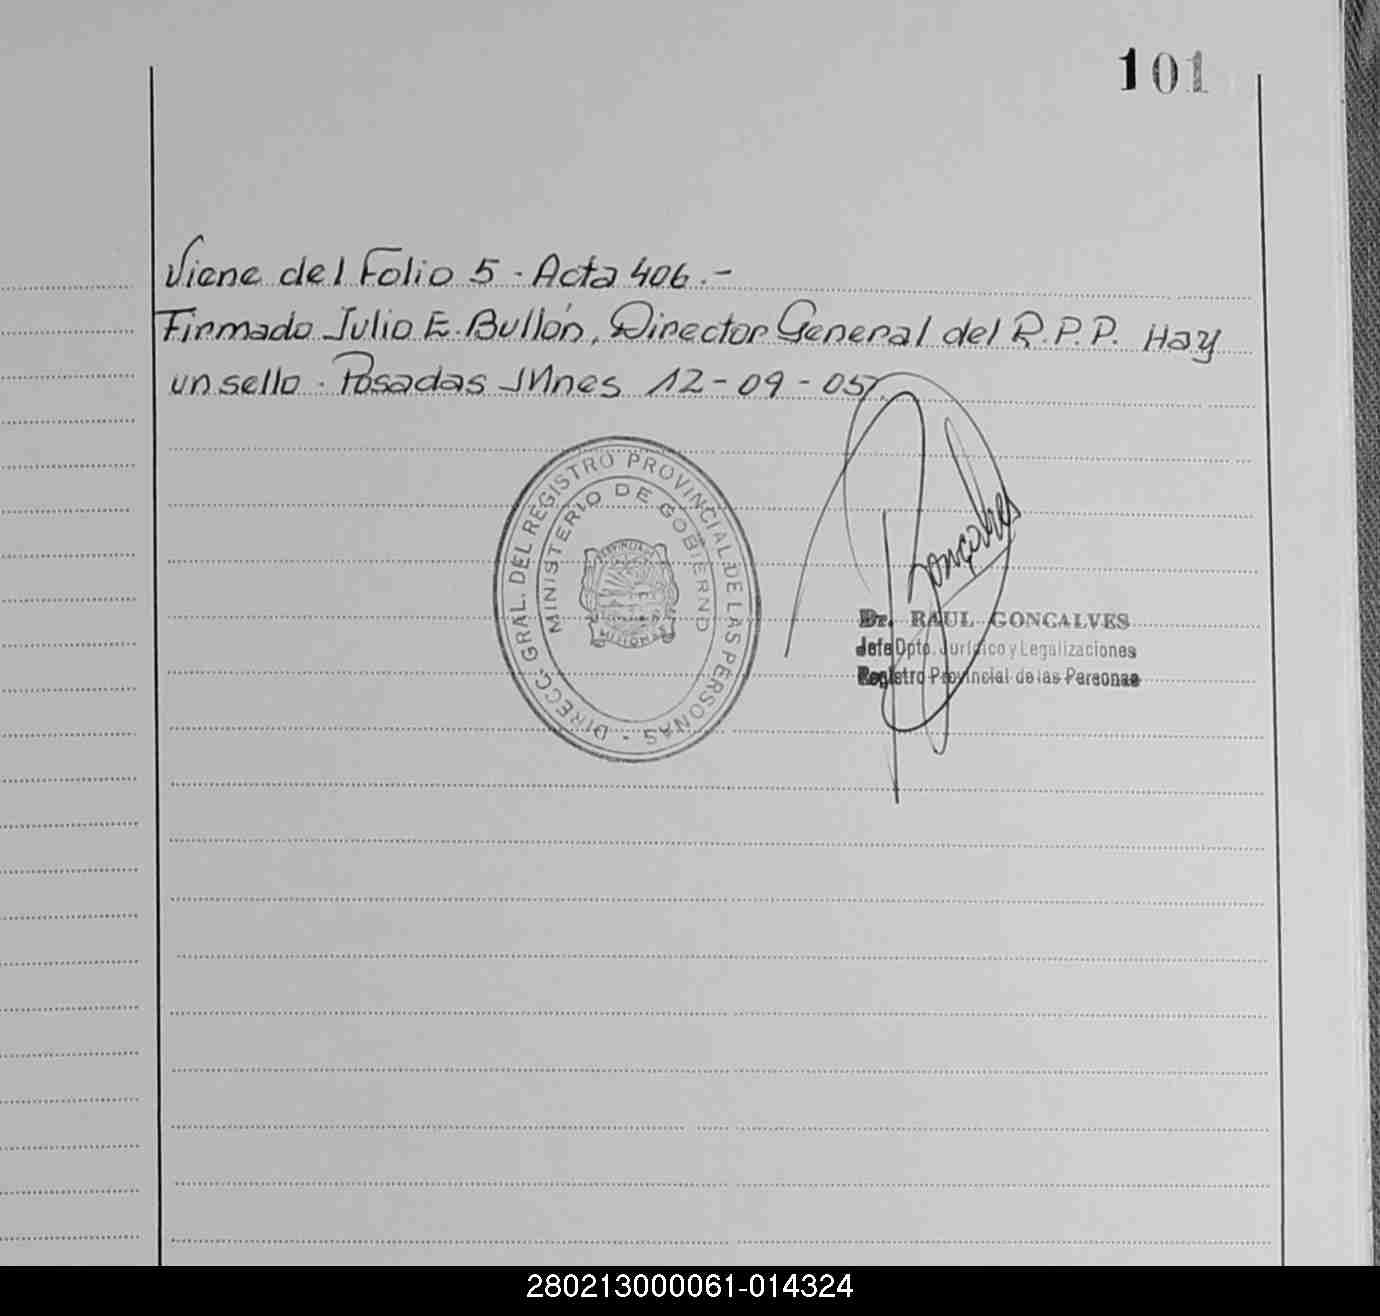 101
Viene del Folio 5 - Acta 406.-
Firmado Julio E. Bullón, Director General del R.P.P. Hay
un sello. Posadas Mnes 12-09-05.
DIRECC. GRAL. DEL REGISTRO PROVINCIAL DE LAS PERSONAS -
MINISTERIO DE GOBIERNO
PROVINCIA DE
MISIONES
Gonçalves
Dr. RAUL GONCALVES
Jefe Dpto. Jurídico y Legalizaciones
Registro Provincial de las Personas
280213000061-014324